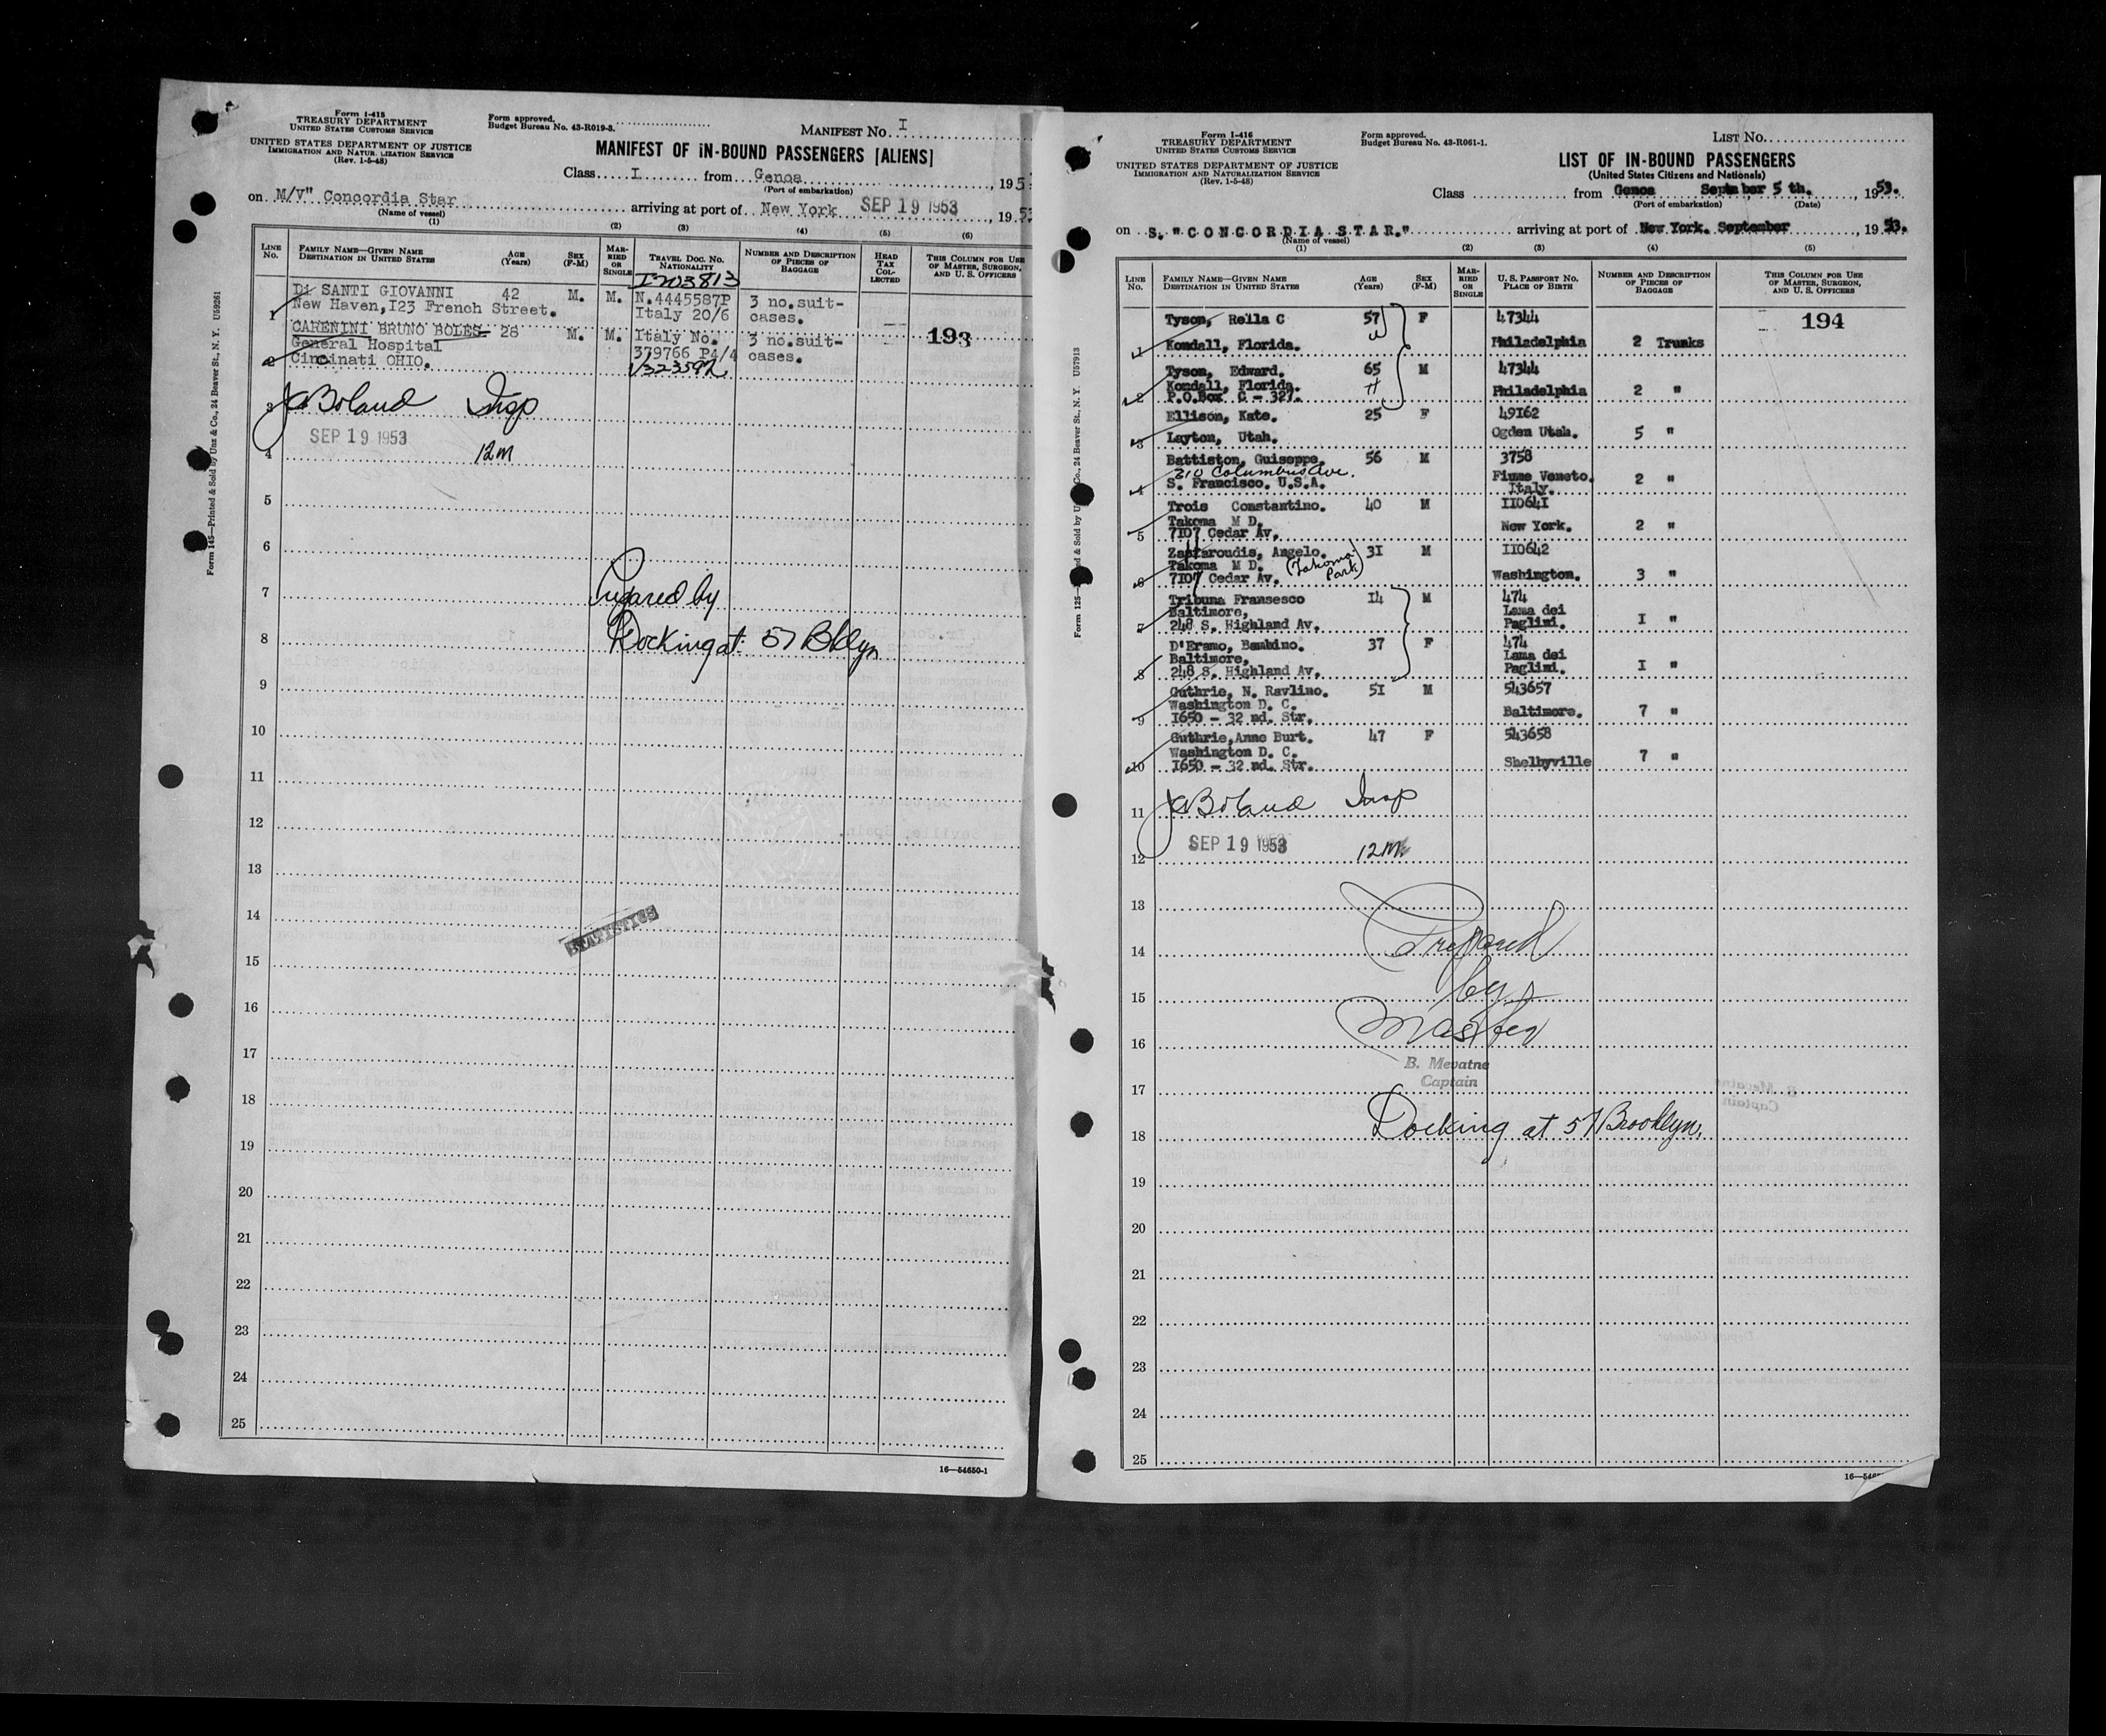 Form I-415
TREASURY DEPARTMENT
UNITED STATES CUSTOMS SERVICE
UNITED STATES DEPARTMENT OF JUSTICE
IMMIGRATION AND NATUR LIZATION SERVICE
(Rev. 1-5-48)
Form approved.
Budget Bureau No. 43-R019-3.
MANIFEST No. I
MANIFEST OF IN-BOUND PASSENGERS [ALIENS]
Class I from Genoa, 195
(Port of embarkation)
on M/V" Concordia Star arriving at port of New York SEP 19 1953, 1953
(Name of vessel)
(1) (2) (3) (4) (5) (6)
LINE No. FAMILY NAME—GIVEN NAME DESTINATION IN UNITED STATES AGE (Years) SEX (F-M) MARRIED OR SINGLE TRAVEL DOC. NO. NATIONALITY NUMBER AND DESCRIPTION OF PIECES OF BAGGAGE HEAD TAX COLLECTED THIS COLUMN FOR USE OF MASTER, SURGEON, AND U. S. OFFICERS
I703813
Di SANTI GIOVANNI 42 M. M. N.4445587P 3 no.suit-
1 New Haven,I23 French Street. Italy 20/6 cases.
CARENINI BRUNO BOLES 28 M. M. Italy No. 3 no.suit- 193
General Hospital 379766 P4/4 cases.
2 Cincinati OHIO. V323592
3 Boland Insp
SEP 19 1953
4 12m
5
6
7 Prepared by
8 Docking at 57 Bklyn
9
10
11
12
13
14 STATISTICS
15
16
17
18
19
20
21
22
23
24
25
16—54650-1
Form 145—Printed & Sold by Unz & Co., 24 Beaver St., N. Y. U59261
Form I-416
TREASURY DEPARTMENT
UNITED STATES CUSTOMS SERVICE
UNITED STATES DEPARTMENT OF JUSTICE
IMMIGRATION AND NATURALIZATION SERVICE
(Rev. 1-5-48)
Form approved.
Budget Bureau No. 43-R061-1.
LIST No.
LIST OF IN-BOUND PASSENGERS
(United States Citizens and Nationals)
Class from Genoa September 5 th., 1953.
(Port of embarkation) (Date)
on S. "CONCORDIA STAR." arriving at port of New York. September, 1953.
(Name of vessel)
(1) (2) (3) (4) (5)
LINE No. FAMILY NAME—GIVEN NAME DESTINATION IN UNITED STATES AGE (Years) SEX (F-M) MARRIED OR SINGLE U. S. PASSPORT NO. PLACE OF BIRTH NUMBER AND DESCRIPTION OF PIECES OF BAGGAGE THIS COLUMN FOR USE OF MASTER, SURGEON, AND U. S. OFFICERS
Tyson, Reila C 57 F 47344 194
W
1 Kondall, Florida. Philadelphia 2 Trunks
Tyson, Edward. 65 M 47344
Kondall, Florida. H Philadelphia 2 "
2 P.O.Box C - 327.
Ellison, Kate. 25 F 49I62
3 Layton, Utah. Ogden Utah. 5 "
Battiston, Guiseppe. 56 M 3758
210 Columbus Ave.
4 S. Francisco. U.S.A. Fiume Veneto. Italy. 2 "
Trois Constantino. 40 M II064I
Takoma M D. New York. 2 "
5 7107 Cedar Av.
Zaftaroudis, Angelo. 3I M II0642
Takoma M D. (Takoma Park)
6 7107 Cedar Av. Washington. 3 "
Tribuna Fransesco I4 M 474
Baltimore, Lama dei
7 248 S. Highland Av. Paglini. I "
D'Eramo, Bambino. 37 F 474
Baltimore, Lama dei
8 248 S. Highland Av. Paglini. I "
Guthrie, N. Ravlino. 5I M 543657
Washington D. C.
9 I650 - 32 nd. Str. Baltimore. 7 "
Guthrie,Anne Burt. 47 F 543658
Washington D. C.
10 I650 - 32 nd. Str. Shelbyville 7 "
11 Boland Insp
SEP 19 1953 12M
12
13
14 Prepared
15 by
16 Master
B. Mevatne
Captain
17
18 Docking at 57 Brooklyn.
19
20
21
22
23
24
25